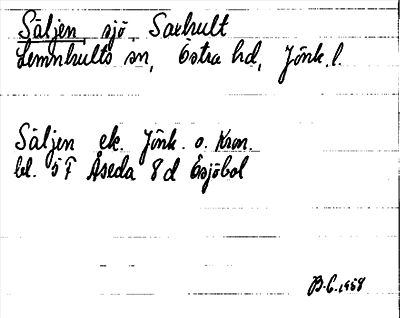 Säljen, sjö, Saxhult
Lemnhults sn, Östra hd, Jönk. l.
Säljen ek. Jönk. o. Kron.
bl. 5 F Åseda 8 d Esjöbol
B.G. 1958